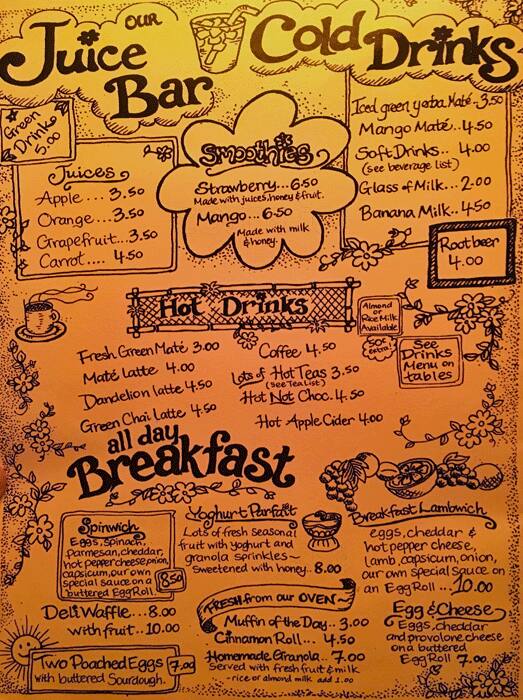 OUR
Juice
Bar
Cold Drinks
Green
Drink
5.00
Juices
Apple .... 3.50
Orange... 3.50
Grapefruit...3.50
Carrot.... 4.50
Smoothies
Strawberry...6.50
Made with juices, honey & fruit.
Mango... 6.50
Made with milk
& honey.
Iced green yerba Maté.3.50
Mango Maté...4.50
Soft Drinks.. 4.00
(see beverage list)
Glass of Milk...2.00
Banana Milk..4.50
Root beer
4.00
Hot Drinks
Almond
or
Rice Milk
Available
50¢
extra!
See
Drinks
Menu on
tables
Fresh Green Maté 3.00
Maté Latte 4.00
Dandelion latte 4.50
Green Chai Latte 4.50
Coffee 4.50
Lots of Hot Teas 3.50
(See Tea List)
Hot Not Choc. 4.50
Hot Apple Cider 4.00
all day
Breakfast
Spinwich
Eggs, spinach,
parmesan, cheddar,
hot pepper cheese, onion,
capsicum, our own
special sauce on a
buttered Egg Roll.
8.50
Deli Waffle...8.00
with fruit..10.00
Two Poached Eggs
with buttered Sourdough.
7.00
Yoghurt Parfait
Lots of fresh seasonal
fruit with yoghurt and
granola sprinkles~
Sweetened with honey.. 8.00
FRESH from our OVEN~
Muffin of the Day.. 3.00
Cinnamon Roll... 4.50
Homemade Granola.. 7.00
Served with fresh fruit & milk
- rice or almond milk add 1.00
Breakfast Lambwich
eggs, cheddar &
hot pepper cheese,
lamb, capsicum, onion,
our own special sauce on
an Egg Roll ...10.00
Egg & Cheese
Eggs, cheddar
and provolone cheese
on a buttered
Egg Roll 7.00